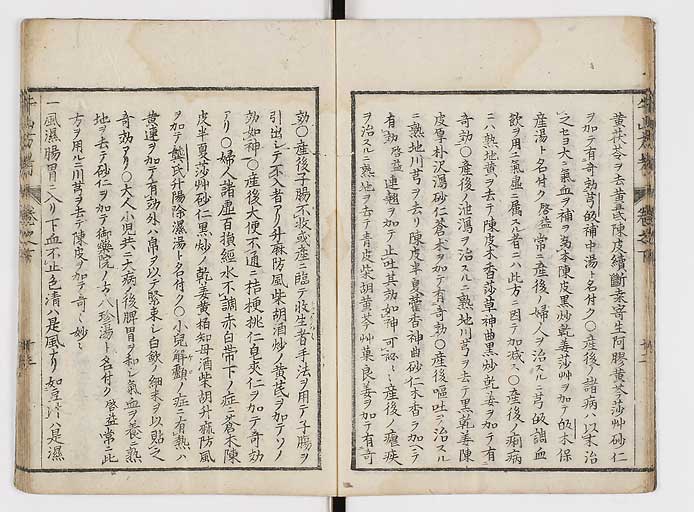 黄茯苓ヲ去黄芪陳皮續斷桒寄生阿膠黄芩莎艸砂仁
ヲ加テ有奇効芎皈補中湯ト名付ク〇産後ノ諸病ハ以末治
之セヨ大ニ氣血ヲ補ヲ為本陳皮黒炒乾姜莎艸ヲ加テ皈木保
産湯ト名付ク啓益常ニ産後ノ婦人ヲ治スルニ芎皈調血
飲ヲ用ニ氣虚ニ属スル者ニハ此方ニ因テ加减ス〇産後ノ痢病
ニハ熟地黄ヲ去テ陳皮木香莎草神曲黒炒乾姜ヲ加テ有
奇効〇産後ノ泄瀉ヲ治スルニ熟地川芎ヲ去テ黒乾姜陳
皮厚朴沢瀉砂仁蒼木ヲ加テ有奇効〇産後嘔吐ヲ治スル
ニ熟地川芎ヲ去リ陳皮半夏藿香神曲砂仁木香ヲ加ヘテ
有効啓益連翹ヲ加テ止吐其効如神可秘〻産後ノ瘧疾
ヲ治スルニ熟地ヲ去テ青皮柴胡黄芩艸菓良姜ヲ加テ有奇
効〇産後子腸不收或産ニ臨テ收生者手法ヲ用テ子腸ヲ
引出シテ不入者アリ升麻防風柴胡酒炒ノ黄芪ヲ加テソノ
効如神〇産後大便不通ニ桔梗桃仁皂莢仁ヲ加テ奇効
アリ〇婦人諸虚百損經水不調赤白帯下ノ症ニ蒼木陳
皮半夏莎艸砂仁黒炒ノ乾姜黄栢知母酒柴胡升麻防風
ヲ加テ龔氏升陽除濕湯ト名付ク〇小兒解顱ノ症ニ有熱ハ
黄連ヲ加テ有効外ハ帛ヲ以テ緊束シ白斂ノ細末ヲ以貼之
奇効アリ〇大人小児共ニ大病後脾胃ヲ和シ氣血ヲ養ニ熟
地ヲ去テ砂仁ヲ加テ御藥院ノ方八珍湯ト名付ク啓益常ニ此
方ヲ用ルニ川芎ヲ去テ陳皮ヲ加テ奇〻妙〻
一風濕腸胃ニ入リ下血不止色清ハ是風ナリ如豆汁ハ是濕